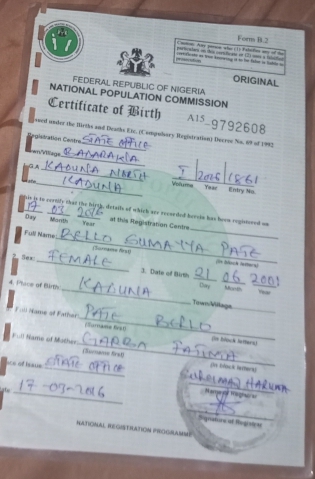 Form B.2
Caution: Any person who (1) Falsifies any of the
particulars on this certificate or (2) uses a falsified
certificate as true knowing it to be false is liable to
prosecution
ORIGINAL
FEDERAL REPUBLIC OF NIGERIA
NATIONAL POPULATION COMMISSION
Certificate of Birth
A15-9792608
Issued under the Births and Deaths Etc. (Compulsory Registration) Decree No. 69 of 1992
Registration Centre STATE OFFICE
Town/Village
L.G.A. KADUNA NORTH I 2016 1861
State KADUNA Volume Year Entry No.
This is to certify that the birth, details of which are recorded herein has been registered on
17 03 2016 at this Registration Centre
Day Month Year
Full Name: BELLO SUMAYYA PATE
(Surname first) (in block letters)
Sex: FEMALE 3. Date of Birth 21 06 2001
Day Month Year
4. Place of Birth KADUNA Town/Village
Full Name of Father PATE BELLO
(Surname first) (in block letters)
Full Name of Mother GARBA FATIMA
(Surname first) (in block letters)
Place of Issue: STATE OFFICE HARUNA
Name of Registrar
Date: 17-03-2016
Signature of Registrar
NATIONAL REGISTRATION PROGRAMME